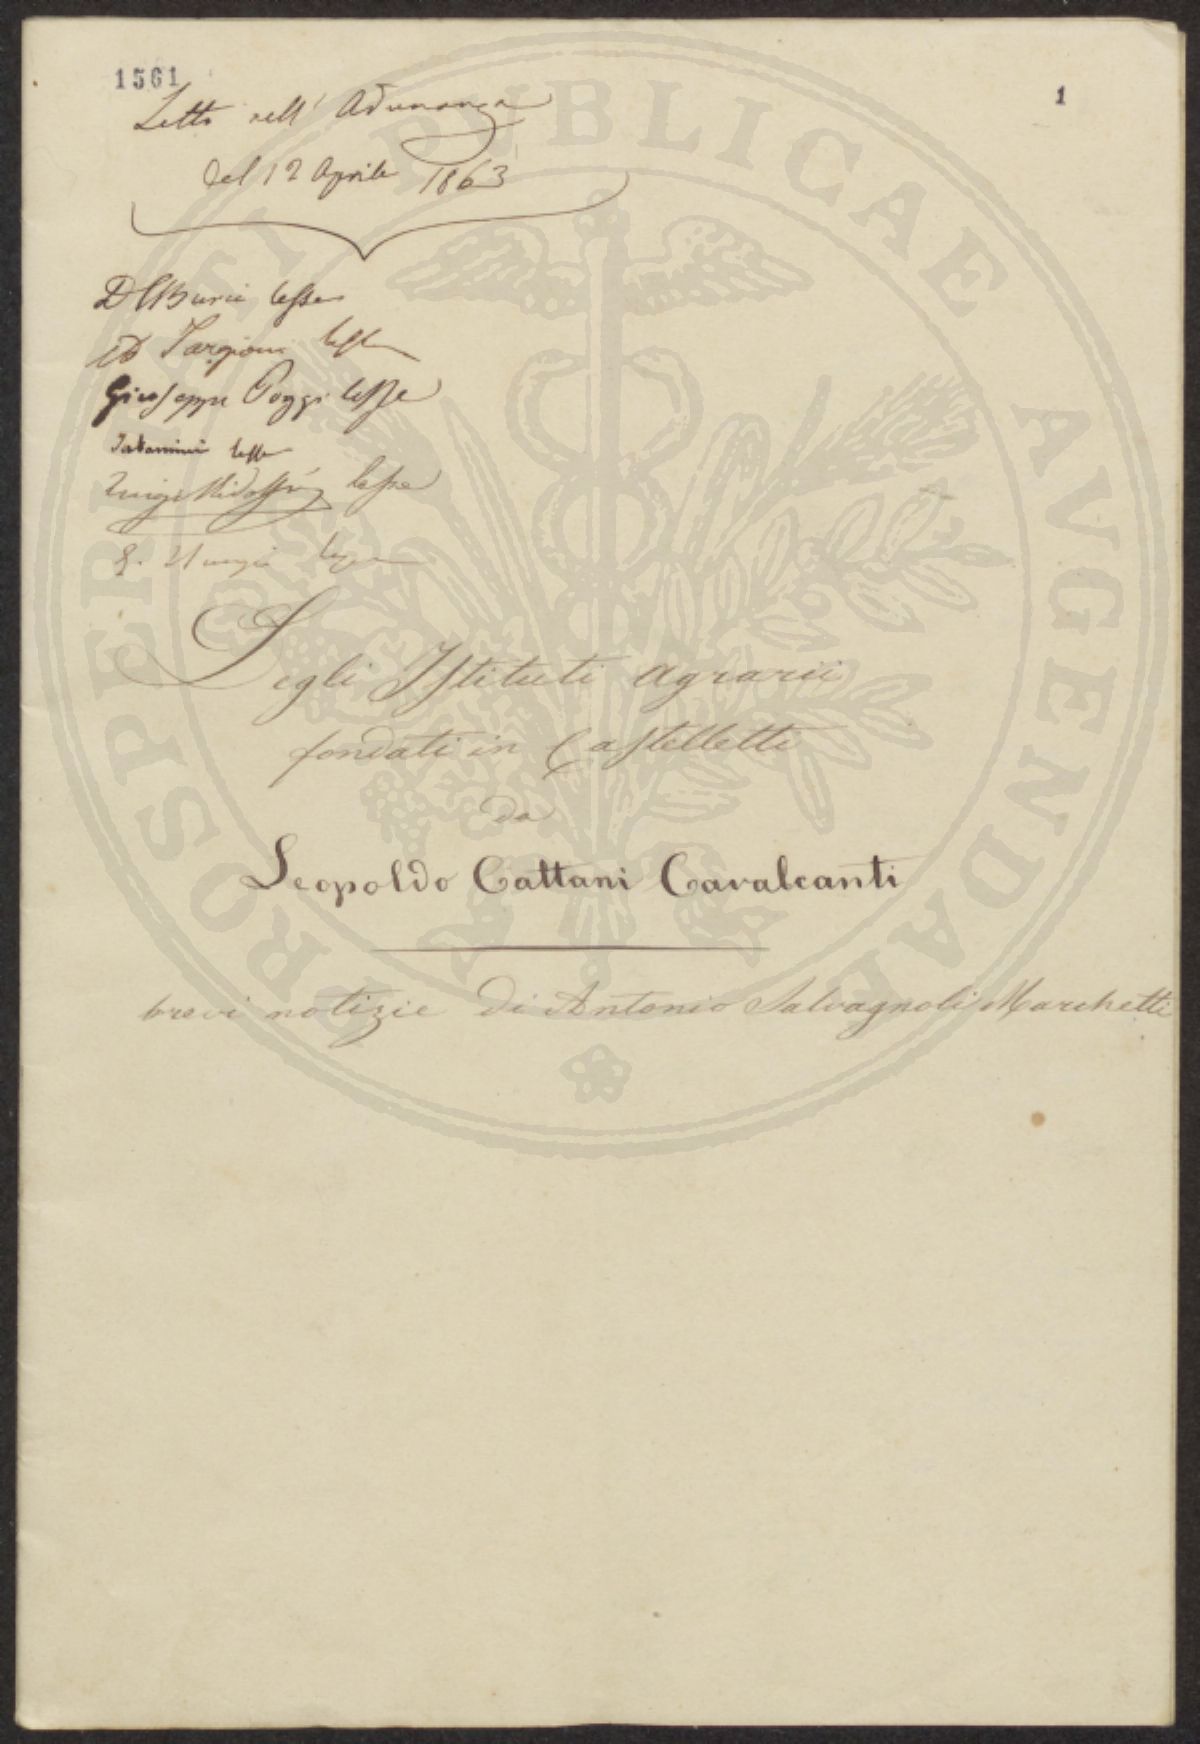 1561
1
Letto nell' Adunanza
del 12 Aprile 1863
lesse
Targioni
Giuseppe Poggi lesse
lesse
Luigi Ridolfi lesse
Degli Istituti agrarii
fondati in Castelletti
da
Leopoldo Cattani Cavalcanti
brevi notizie di Antonio Salvagnoli Marchetti
PROSPERITATI PUBLICAE AUGENDAE